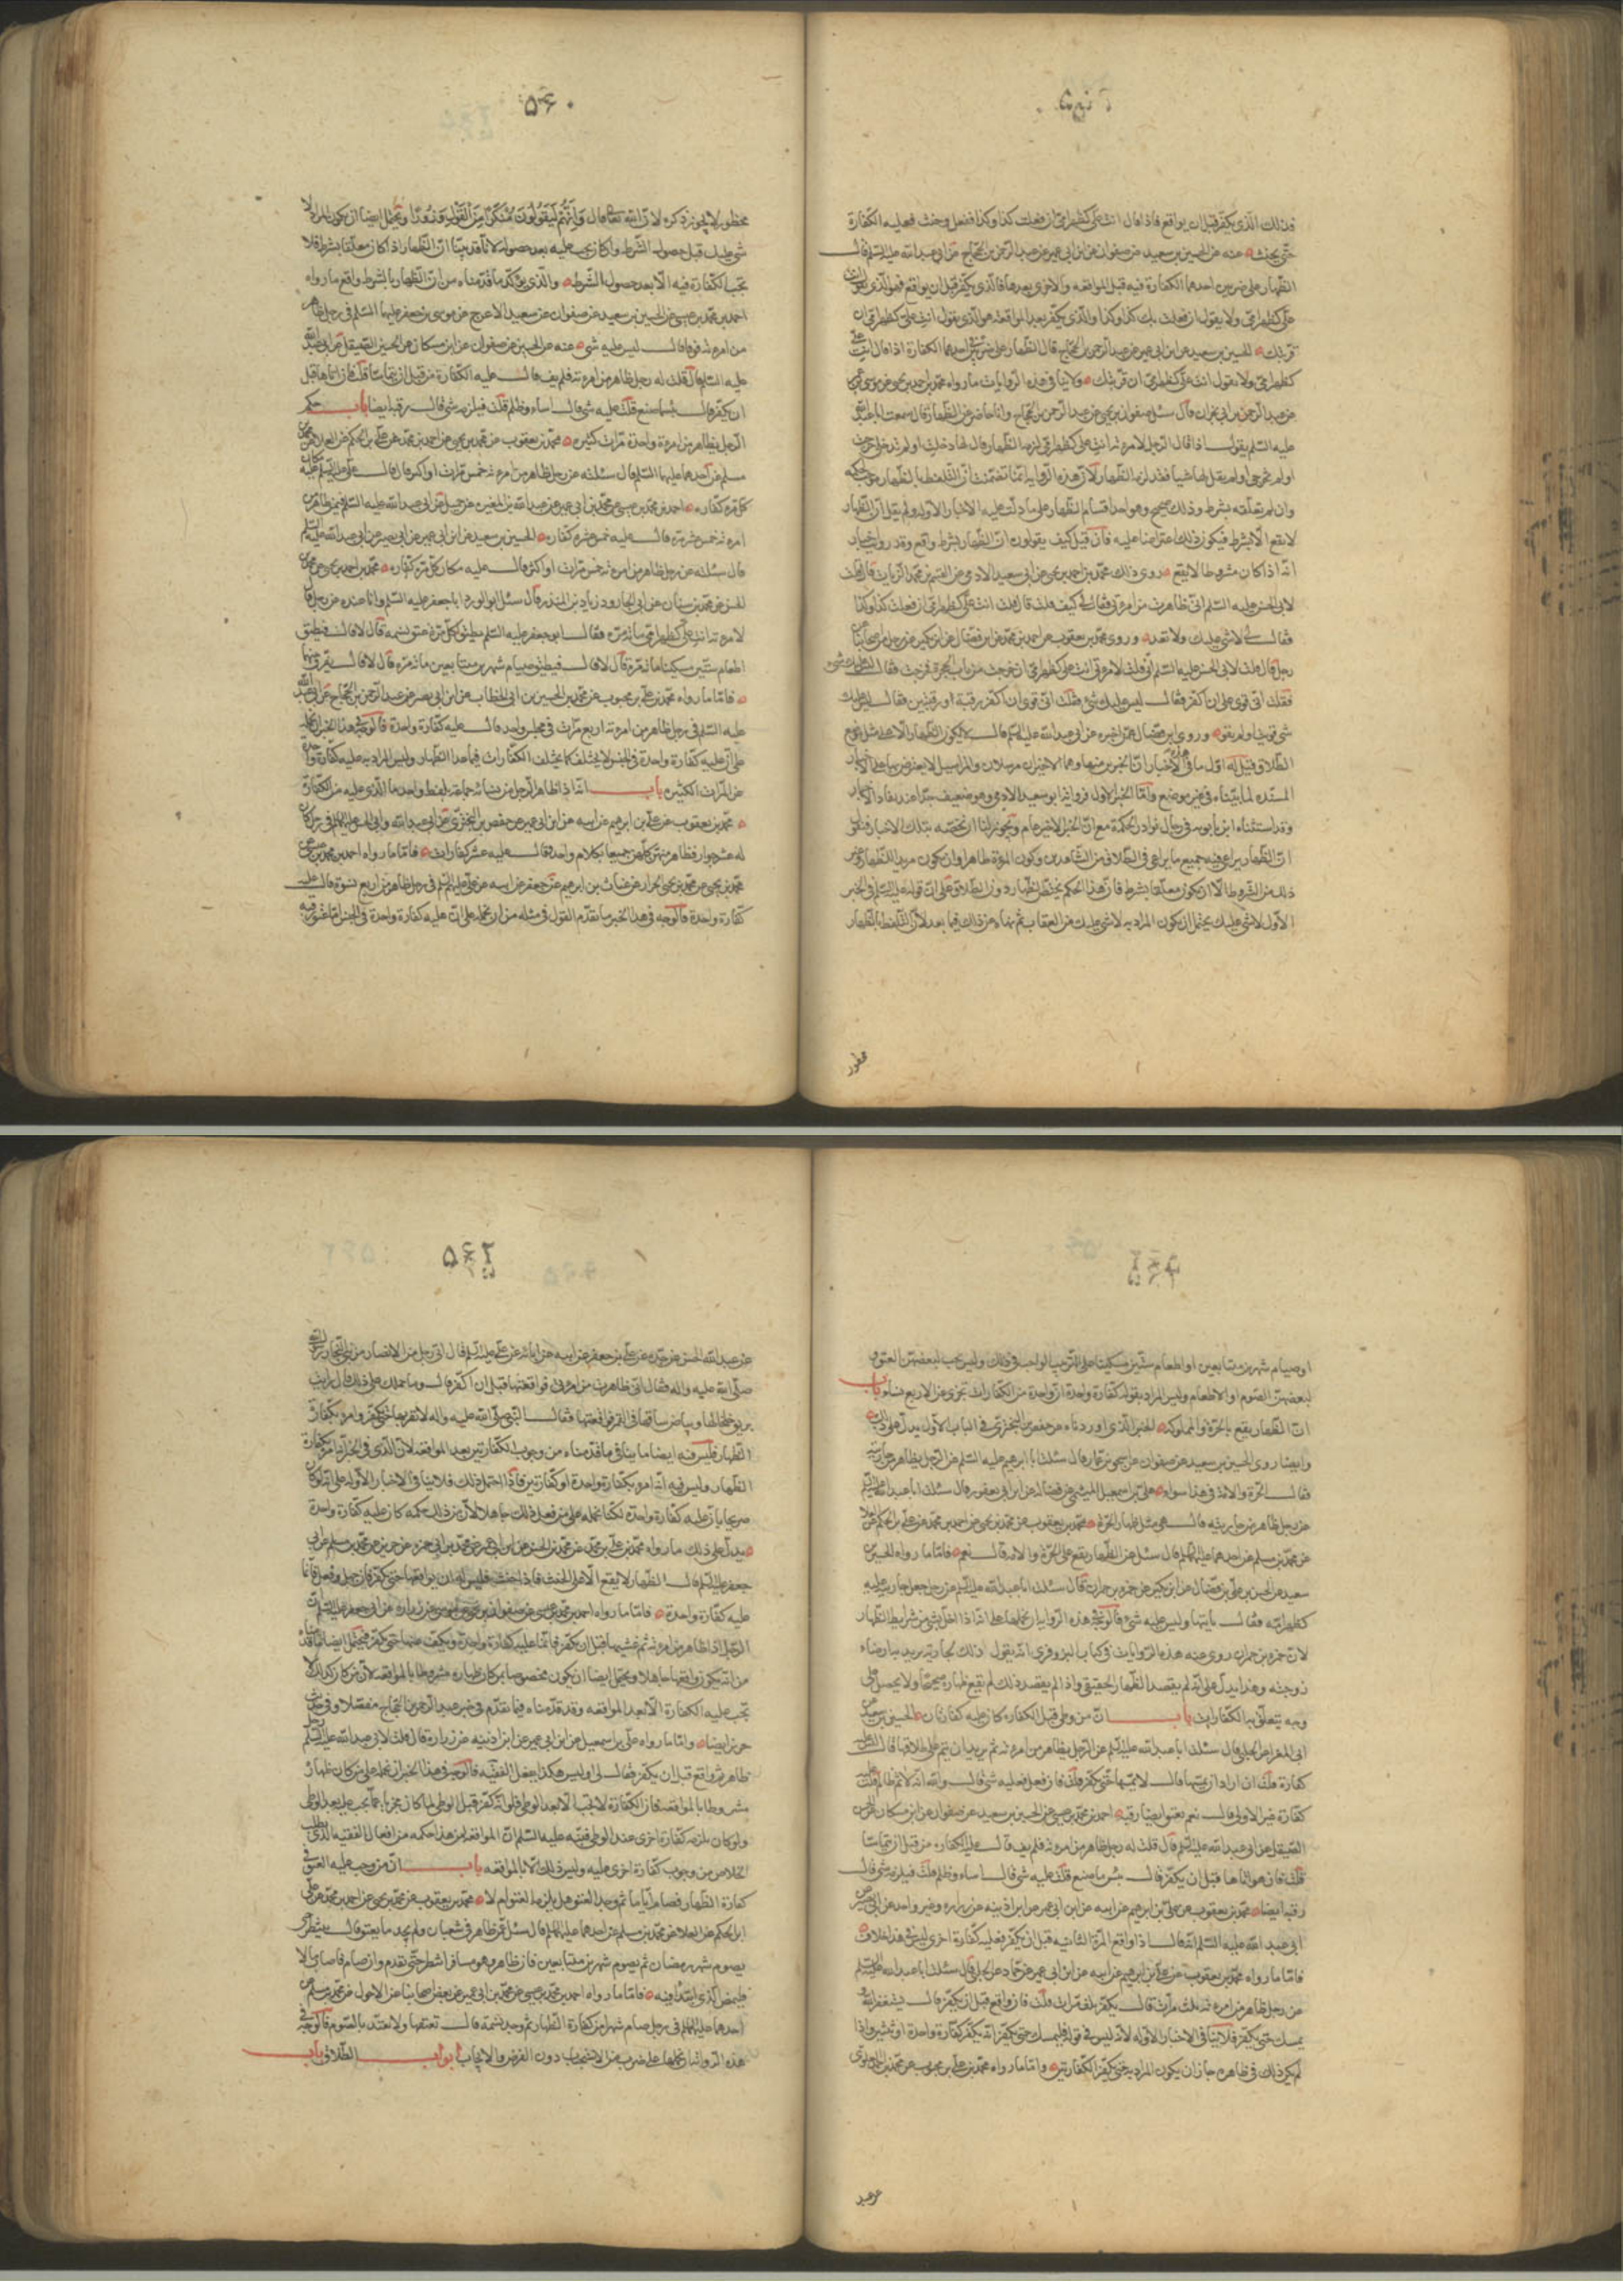 فذلك الذي يكفر قبل ان يواقع فاذا قال انت علي كظهر امي ان فعلت كذا وكذا ففعل وحنث فعليه الكفارة
حتى يحنث عنه عن الحسين بن سعيد عن صفوان عن ابن ابي عمير عن عبد الرحمن بن الحجاج عن ابي عبد الله عليه السلم قال
الظهار على ضربين احدهما الكفارة فيه قبل المواقعه والاخرى بعدها فالذي يكفر قبل ان يواقع فهو الذي يقول انت
علي كظهر امي ولا يقول ان فعلت بك كذا وكذا والذي يكفر بعد المواقعة هو الذي يقول انت علي كظهر امي ان
قربتك الحسين بن سعيد عن ابن ابي عمير عن عبد الرحمن بن الحجاج قال الظهار على ضربين في احدهما الكفارة اذا قال انت علي
كظهر امي ولا يقول انت علي كظهر امي ان قربتك ولا ينافي هذه الروايات ما رواه محمد بن احمد بن يحيى عن موسى بن عمر
عن عبد الرحمن بن ابي نجران قال سئل صفوان بن يحيى عن عبد الرحمن بن الحجاج وانا حاضر عن الظهار قال سمعت ابا عبد الله
عليه السلم يقول اذا قال الرجل لامرءته انت علي كظهر امي لزمه الظهار قال لها دخلت او لم تدخلي خرجت
او لم تخرجي او لم يقل لها شيئا فقد لزمه الظهار لان هذه الرواية انما تضمنت ان التلفظ بالظهار موجب لحكمه
وان لم يعلقه بشرط وذلك صحيح وهو احد اقسام الظهار على ما دلت عليه الاخبار الاوله ولم يقل ان الظهار
لا يقع الا بشرط فيكون ذلك اعتراضا عليه فان قيل كيف يقولون ان الظهار بشرط واقع وقد روايت اخبار
انه اذا كان مشروطا لا يقع روى ذلك محمد بن احمد بن يحيى عن ابي سعيد الادمي عن القسم بن محمد الزيات قال قلت
لابي الحسن عليه السلم اني ظاهرت من امرءتي فقال لي كيف قلت قال قلت انت علي كظهر امي ان فعلت كذا وكذا
فقال لي لا شئ عليك ولا تعد وروى محمد بن يعقوب عن احمد بن محمد عن ابن فضال عن ابن بكير عن رجل من اصحابنا عن
رجل قال قلت لابي الحسن عليه السلم اني قلت لامرءتي انت علي كظهر امي ان خرجت من باب الحجرة فخرجت فقال ليس عليك شئ
فقلت اني قوي على ان اكفر فقال ليس عليك شئ فقلت اني قوي ان اكفر رقبة او رقبتين فقال ليس عليك
شئ قويت او لم تقو وروى ابن فضال عمن اخبره عن ابي عبد الله عليه السلم قال لا يكون الظهار الا على مثل موضع
الطلاق قيل له اول ما في هذه الأخبار ان الخبرين منها وهما الاخيران مرسلان والمراسيل لا يعترض بها على الاخبار
المسنده لما بيناه في غير موضع واما الخبر الاول فراويه ابو سعيد الادمي وهو ضعيف جدا عند نقاد الاخبار
وقد استثناه ابن بابويه في رجال نوادر الحكمة مع ان الخبر الاخير عام ويجوز لنا ان نخصه بتلك الاخبار فنقول
ان الظهار يراعى فيه جميع ما يراعى في الطلاق من الشاهدين وكون المرءة طاهرا وان يكون مريدا للظهار وغير
ذلك من الشروط الا ان يكون معلقا بشرط فان هذا الحكم يختص الظهار دون الطلاق على ان قوله عليه السلم في الخبر
الاول لا شئ عليك يحتمل ان يكون المراد به لا شئ عليك من العقاب ثم نهاه عن ذلك فيما بعد لان التلفظ بالظهار
محظور
۵۶۰
محظور لا يجوز ذكره لان الله تعالى قال وَإِنَّهُمْ لَيَقُولُونَ مُنْكَرًا مِنَ الْقَوْلِ وَزُورًا ويحتمل ايضا ان يكون المراد لا
شئ عليك قبل حصول الشرط وان كان يجب عليه بعد حصوله لانا قد بينا ان الظهار اذا كان معلقا بشرط فلا
تجب الكفارة فيه الا بعد حصول الشرط والذي يؤكد ما قدمناه من ان الظهار بالشرط واقع ما رواه
احمد بن محمد بن عيسى عن الحسين بن سعيد عن صفوان عن سعيد الاعرج عن موسى بن جعفر عليهما السلم في رجل ظاهر
من امرءته فوفا قال ليس عليه شئ عنه عن الحسين عن صفوان عن ابن مسكان عن الحسن الصيقل عن ابي عبد الله
عليه السلم قال قلت له رجل ظاهر من امرءته فلم يف قال عليه الكفارة من قبل ان يتماسا قلت فان اتاها قبل
ان يكفر قال بئسما صنع قلت عليه شئ قال اساء وظلم قلت فيلزمه شئ قال رقبة ايضا باب حكم
الرجل يظاهر من امرءة واحدة مرات كثيره محمد بن يعقوب عن محمد بن يحيى عن احمد بن محمد عن علي بن الحكم عن العلا عن محمد بن
مسلم عن احدهما عليهما السلم قال سئلته عن رجل ظاهر من امرءته خمس مرات او اكثر فقال قال علي عليه السلم مكان
كل مرة كفاره احمد بن محمد بن عيسى عن محمد بن ابي عمير عن عبد الله بن المغيره عن جميل عن ابي عبد الله عليه السلم فيمن ظاهر من
امرءته خمس عشرة مره قال عليه خمس عشرة كفاره الحسين بن سعيد عن ابن ابي عمير عن ابي بصير عن ابي عبد الله عليه السلم
قال سئلته عن رجل ظاهر من امرءته خمس مرات او اكثر قال عليه مكان كل مرة كفاره محمد بن احمد بن يحيى عن محمد بن
الحسين عن محمد بن سنان عن ابي الجارود زياد بن المنذر قال سئل ابو الورد ابا جعفر عليه السلم وانا عنده عن رجل قال
لامرءته انت علي كظهر امي مائة مرة فقال ابو جعفر عليه السلم يطيق لكل مرة عتق نسمه قال لا قال فيطيق
اطعام ستين مسكينا مائة مرة قال لا قال فيطيق صيام شهرين متتابعين مائة مره قال لا قال يفرق بينهما
فاما ما رواه محمد بن علي بن محبوب عن محمد بن الحسين بن ابي الخطاب عن ابن ابي نصر عن عبد الرحمن بن الحجاج عن ابي عبد الله
عليه السلم في رجل ظاهر من امرءته اربع مرات في مجلس واحد قال عليه كفارة واحدة فالوجه في هذا الخبر ان نحمله
على ان عليه كفارة واحدة في الجنس لا يختلف كما يختلف الكفارات فيما عدا الظهار وليس المراد به عليه كفارة واحدة
عن المرات الكثيره باب انه اذا ظاهر الرجل من نسائه جماعة بلفظ واحد ما الذي عليه من الكفارة
محمد بن يعقوب عن علي بن ابراهيم عن ابيه عن ابن ابي عمير عن حفص بن البختري عن ابي عبد الله وابي الحسن عليهما السلم في رجل كان
له عشر جوار فظاهر منهن كلهن جميعا بكلام واحد فقال عليه عشر كفارات فاما ما رواه احمد بن محمد بن عيسى عن
محمد بن يحيى عن محمد بن يحيى الخزاز عن غياث بن ابراهيم عن جعفر عن ابيه عن علي عليهم السلم في رجل ظاهر من اربع نسوة قال عليه
كفارة واحدة فالوجه في هذا الخبر ما تقدم القول في مثله من ان نحمله على ان عليه كفارة واحدة في الجنس اما عتق رقبه
او صيام شهرين متتابعين او اطعام ستين مسكينا على الترتيب الواجب في ذلك وليس يجب لبعضهن العتق
لبعضهن الصوم او الاطعام وليس المراد بقوله كفارة واحدة ان واحدة من الكفارات تجزي عن الاربع نساء باب
ان الظهار يقع بالحرة والمملوكه الخبر الذي اوردناه عن حفص بن البختري في الباب الاول يدل على ذلك
وايضا روى الحسين بن سعيد عن صفوان عن اسحق بن عمار قال سئلت ابا ابراهيم عليه السلم عن الرجل يظاهر من جاريته
فقال الحرة والامة في هذا سواء علي بن اسمعيل الميثمي عن فضاله عن ابن ابي يعفور قال سئلت ابا عبد الله عليه السلم
عن رجل ظاهر من جاريته قال هي مثل ظهار الحرة محمد بن يعقوب عن محمد بن يحيى عن احمد بن محمد عن علي بن الحكم عن العلا
عن محمد بن مسلم عن احدهما عليهما السلم قال سئل عن الظهار يقع على الحرة والامة قال نعم فاما ما رواه الحسين بن
سعيد عن الحسن بن علي بن فضال عن ابن بكير عن حمزة بن حمران قال سئلت ابا عبد الله عليه السلم عن رجل جعل جاريته عليه
كظهر امه فقال ياتيها وليس عليه شئ فالوجه في هذه الرواية ان نحملها على انه اذا اخل بشئ من شرايط الظهار
لان حمزة بن حمران روى عنه هذه الروايات في كتاب البزوفري انه يقول ذلك لجاريته يريد بها رضاء
زوجته وهذا يدل على انه لم يقصد الظهار الحقيقي واذا لم يقصد ذلك لم يقع ظهاره صحيحا ولا يحصل على
وجه يتعلق به الكفارات باب ان من وطى قبل الكفاره كان عليه كفارتان الحسين بن سعيد عن
ابي المغرا عن الحلبي قال سئلت ابا عبد الله عليه السلم عن الرجل يظاهر من امرءته ثم يريد ان يتم على طلاقها قال ليس عليه
كفارة قلت ان اراد ان يمسها قال لا يمسها حتى يكفر قلت فان فعل فعليه شئ قال والله انه لاثم ظالم قلت عليه
كفارة غير الاولى قال نعم يعتق ايضا رقبه احمد بن محمد بن عيسى عن الحسين بن سعيد عن صفوان عن ابن مسكان عن الحسن
الصيقل عن ابي عبد الله عليه السلم قال قلت له رجل ظاهر من امرءته فلم يف قال عليه الكفاره من قبل ان يتماسا
قلت فان هو اتاها قبل ان يكفر قال بئس ما صنع قلت عليه شئ قال اساء وظلم قلت فيلزمه شئ قال
رقبه ايضا محمد بن يعقوب عن علي بن ابراهيم عن ابيه عن ابن ابي عمير عن ابن اذينه عن زراره وغير واحد عن ابي بصير عن
ابي عبد الله عليه السلم انه قال اذا واقع المرة الثانيه قبل ان يكفر فعليه كفارة اخرى ليس في هذا خلاف
فاما ما رواه محمد بن يعقوب عن علي بن ابراهيم عن ابيه عن ابن ابي عمير عن حماد عن الحلبي قال سئلت ابا عبد الله عليه السلم
عن رجل ظاهر من امرءته ثلث مرات قال يكفر ثلث مرات قلت فان واقع قبل ان يكفر قال يستغفر الله و
يمسك حتى يكفر فلا ينافي الاخبار الاوله لانه ليس في قوله فليمسك حتى يكفر انه يكفر كفارة واحدة او ثنتين واذا
لم يكن ذلك في ظاهره جاز ان يكون المراد به حتى يكفر الكفارتين واما ما رواه محمد بن علي بن محبوب عن محمد بن احمد العلوي
عن عبد
۵۶۲
عن عبد الله بن الحسن عن جده عن علي بن جعفر عن ابيه عن ابائه عن علي عليه السلم قال اتى رجل من الانصار من بني النجار رسول الله
صلى الله عليه واله فقال اني ظاهرت من امرءتي فواقعتها قبل ان اكفر قال وما حملك على ذلك قال رايت
بريق خلخالها وبياض ساقها في القمر فواقعتها فقال النبي صلى الله عليه واله لا تقربها حتى تكفر وامره بكفارة
الظهار فليس فيه ايضا ما ينافي ما قدمناه من وجوب الكفارتين بعد المواقعه لان الذي في الخبر انه امره بكفارة
الظهار وليس فيه انه امره بكفارة واحدة او كفارتين فاذا احتمل ذلك فلا ينافي الاخبار الاوله على انه لو كان
صريحا بان عليه كفارة واحدة لكنا نحمله على من فعل ذلك جاهلا لان من ذلك حكمه كان عليه كفارة واحدة
يدل على ذلك ما رواه محمد بن علي بن محبوب عن محمد بن الحسين عن ابن ابي عمير عن محمد بن ابي حمزه عن حريز عن محمد بن مسلم عن ابي
جعفر عليه السلم قال الظهار لا يقع الا على الحنث فاذا حنث فليس له ان يواقعها حتى يكفر فان جهل وفعل فانما
عليه كفارة واحدة فاما ما رواه احمد بن محمد بن عيسى عن صفوان بن يحيى عن موسى عن زراره عن ابي جعفر عليه السلم ان
الرجل اذا ظاهر من امرءته ثم غشيها قبل ان يكفر فانما عليه كفارة واحدة ويكف عنها حتى يكفر فيحتمل ايضا ما قدمناه
من انه يكون واقعها جاهلا ويحتمل ايضا ان يكون مخصوصا بمن كان ظهاره مشروطا بالمواقعه لان من كان كذلك لا
تجب عليه الكفارة الا بعد المواقعه وقد قدمناه فيما تقدم في خبر عبد الرحمن بن الحجاج مفصلا وفي خبر
حريز ايضا واما ما رواه علي بن اسمعيل عن ابن ابي عمير عن ابن اذنيه عن زرارة قال قلت لابي عبد الله عليه السلم رجل
ظاهر ثم واقع قبل ان يكفر فقال لي اوليس هكذا يفعل الفقيه فالوجه في هذا الخبر ان نحمله على من كان ظهاره
مشروطا بالمواقعه فان الكفارة لا تجب الا بعد الوطى فلو انه كفر قبل الوطى لما كان مجزيا عما يجب عليه بعد الوطى
ولو كان يلزمه كفارة اخرى عند الوطى فنبه عليه السلم ان المواقعه لمن هذا حكمه من افعال الفقيه الذي يطلب
الخلاص من وجوب كفارة اخرى عليه وليس ذلك الا بالمواقعه باب ان من وجب عليه العتق في
كفارة الظهار فصام اياما ثم وجد العتق هل يلزمه العتق ام لا محمد بن يعقوب عن محمد بن يحيى عن احمد بن محمد عن علي
ابن الحكم عن العلا عن محمد بن مسلم عن احدهما عليهما السلم قال سئل عمن ظاهر في شعبان ولم يجد ما يعتق قال ينتظر حتى
يصوم شهر رمضان ثم يصوم شهرين متتابعين فان ظاهر وهو مسافر انتظر حتى تقدم وان صام فاصاب مالا
فليمض الذي ابتدا فيه فاما ما رواه احمد بن محمد بن عيسى عن محمد بن ابي عمير عن بعض اصحابنا عن الاحول عن محمد بن مسلم عن
احدهما عليهما السلم في رجل صام شهرا من كفارة الظهار ثم وجد نسمة قال يعتقها ولا يعتد بالصوم فالوجه في
هذه الرواية ان نحملها على ضرب من الاستحباب دون الفرض والايجاب ابواب الطلاق باب